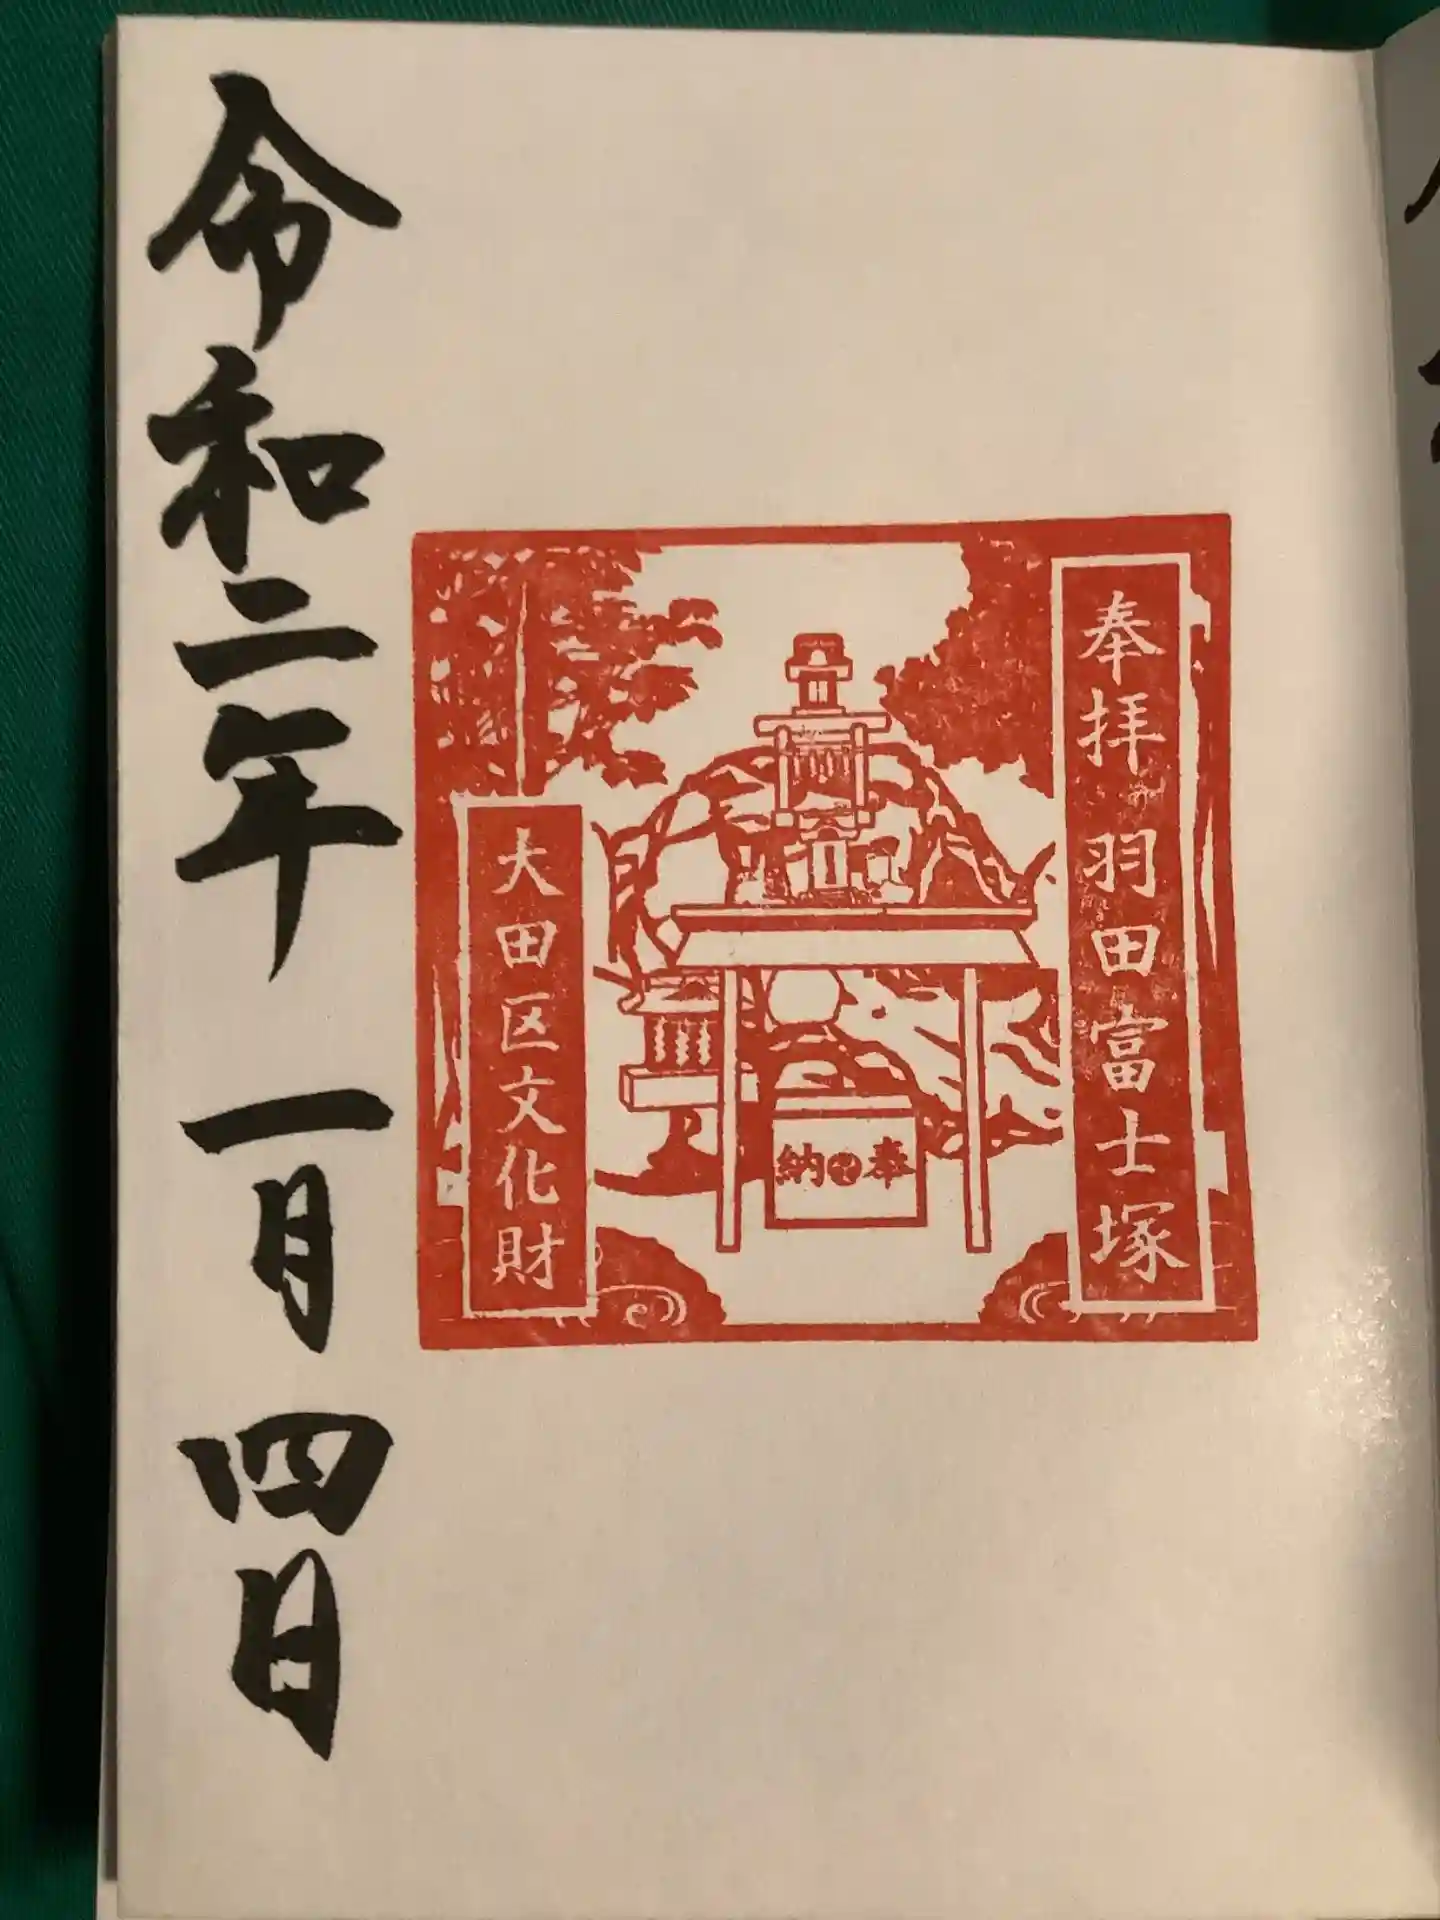 奉拝 羽田富士塚
奉納
大田区文化財
令和二年 一月 四日